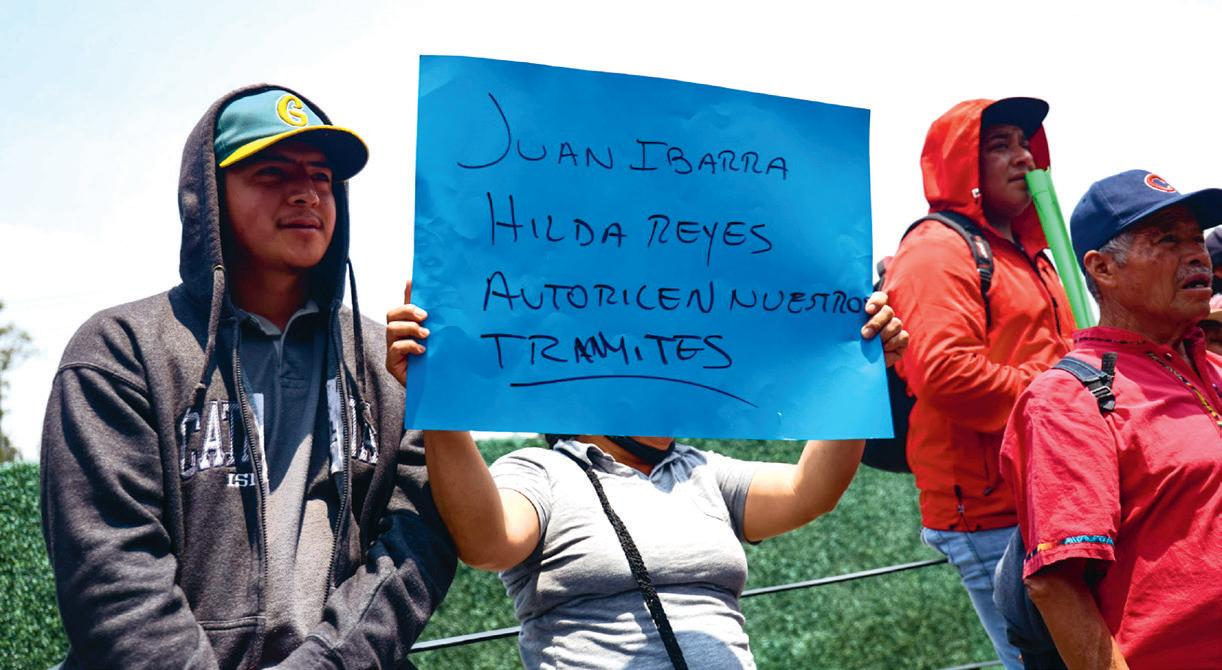 JUAN IBARRA
HILDA REYES
AUTORICEN NUESTRO
TRAMITES
G
CAT
ISL
C